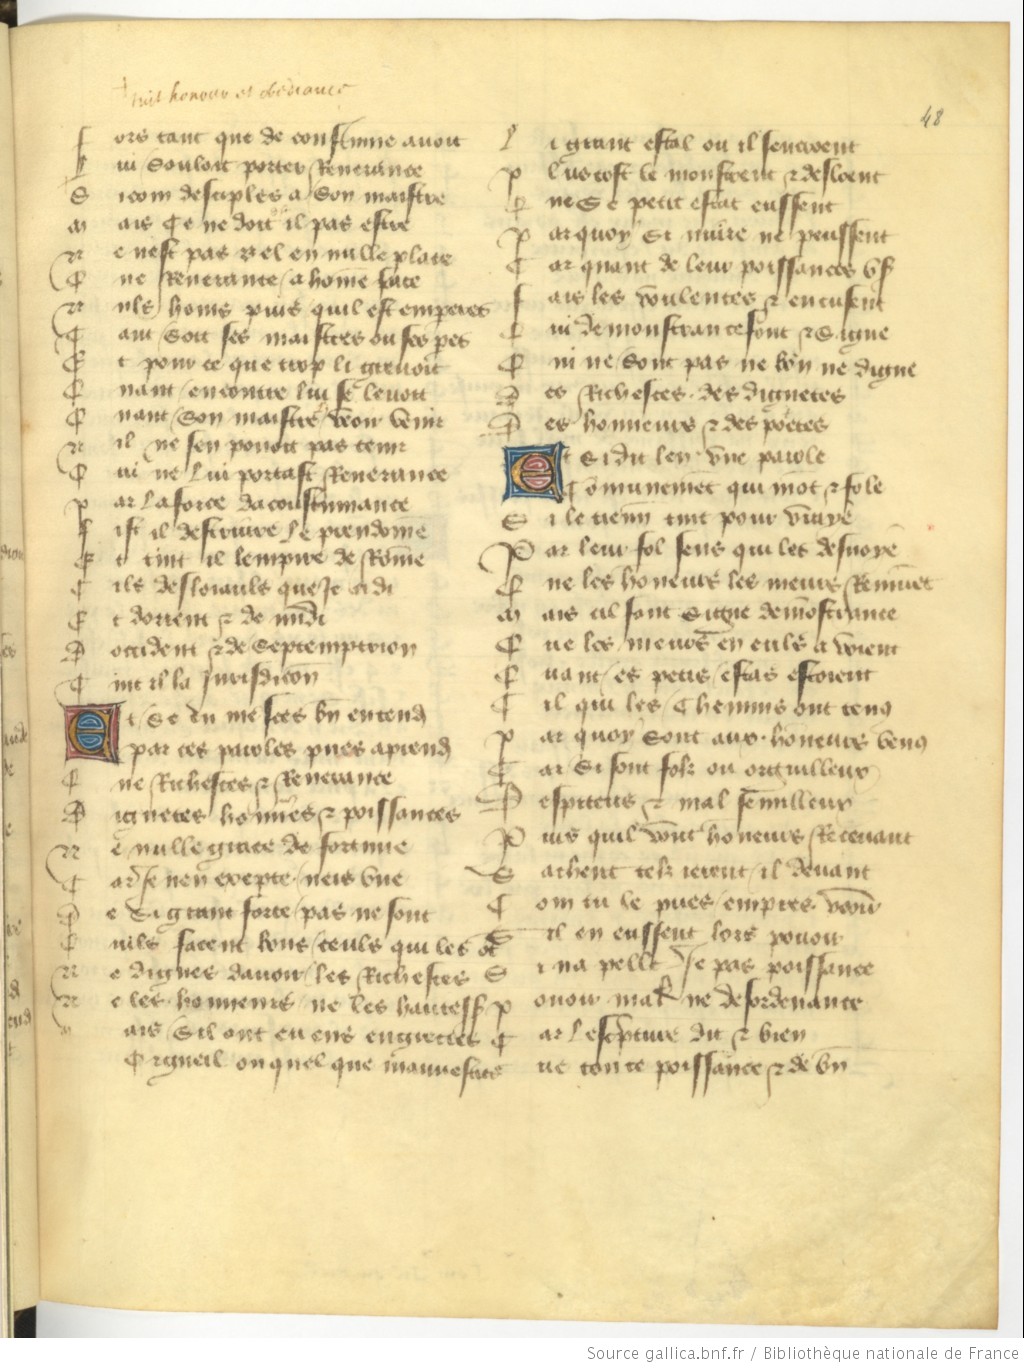 tuit honour et obediance
48
f ors tant que de constume auoit
Q ui Souloit porter Reuerance
S icom desciples a Son maistre
M ais Ce ne doit il pas estre
N e nest pas bel en nulle place
Q ne Reuerance a home face
N uls homs puis quil est emperes
C ant Soit ses maistres ou ses pes
E t pour ce que trop li greuoit
Q nant encontre lui se leuoit
Q nant Son maistre veoir venir
N il ne sen pouoit pas tenir
Q ui ne lui portast Reuerance
p ar la force dacoustumance
f ist il destruire le preudome
E t tint il lempire de Rome
C ils desloiauls que Je ci di
E t dorient & de midi
D occident & de Septemptrion
C int il la Jurisdicon
Et Se tu me sces bn entend
par ces paroles pues aprend
Q ne Richesces & Reuerance
D ignetes honnes & poissances
N e nulle grace de fortune
C ar Je nen excepte neis vne
D e Si grant force pas ne sont
Q nils facent bons ceuls qui les ot
N e dignes dauoir les Richesces
N e les honneurs ne les hautess
M ais Sil ont en eus engrectes
Orgueil ou quel que mauuestiez
L i grant estal ou il sencroent
p lus tost le monstrent & descloent
Q ne Se petit estat eussent
p ar quoy Si nuire ne peussent
C ar quant de leur poissances vs
f ais les voulentes & encusent
Q ui demonstrance font & Signe
Q ui ne Sont pas ne bon ne digne
D es Richesces des dignetes
D es honneurs & des poetes
Et Si dit len vne parole
Comunemet qui mot & fole
S i le tienn tuit pour vraye
P ar leur fol sens qui les desuoye
Q ne les honeurs les meurs Remuet
M ais cil font Signe demostrance
Q ue les meurs en euls a voient
Q uant es petis estas estoient
C il qui les Chemins ont tenq
p ar quoy Sont aux honeurs venq
C ar Si sont folz ou orguilleux
D espiteus & mal semilleux
P uis quil vont honeurs Receuant
S achent telz ierent il deuant
C om tu le pues empres veoir
S il en eussent lors pouoir
S i na pelle Je pas poissance
p ouoir mal ne desordenance
C ar lescpture dit & bien
Q ue toute poissance & de bn
Source gallica.bnf.fr / Bibliothèque nationale de France